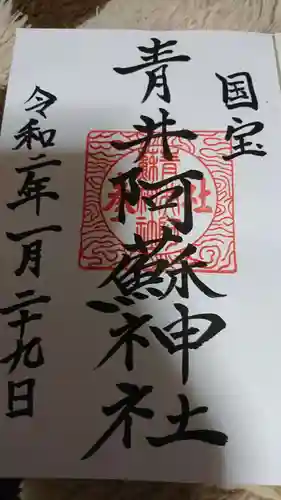 国宝
青井阿蘇神社
令和二年一月二十九日